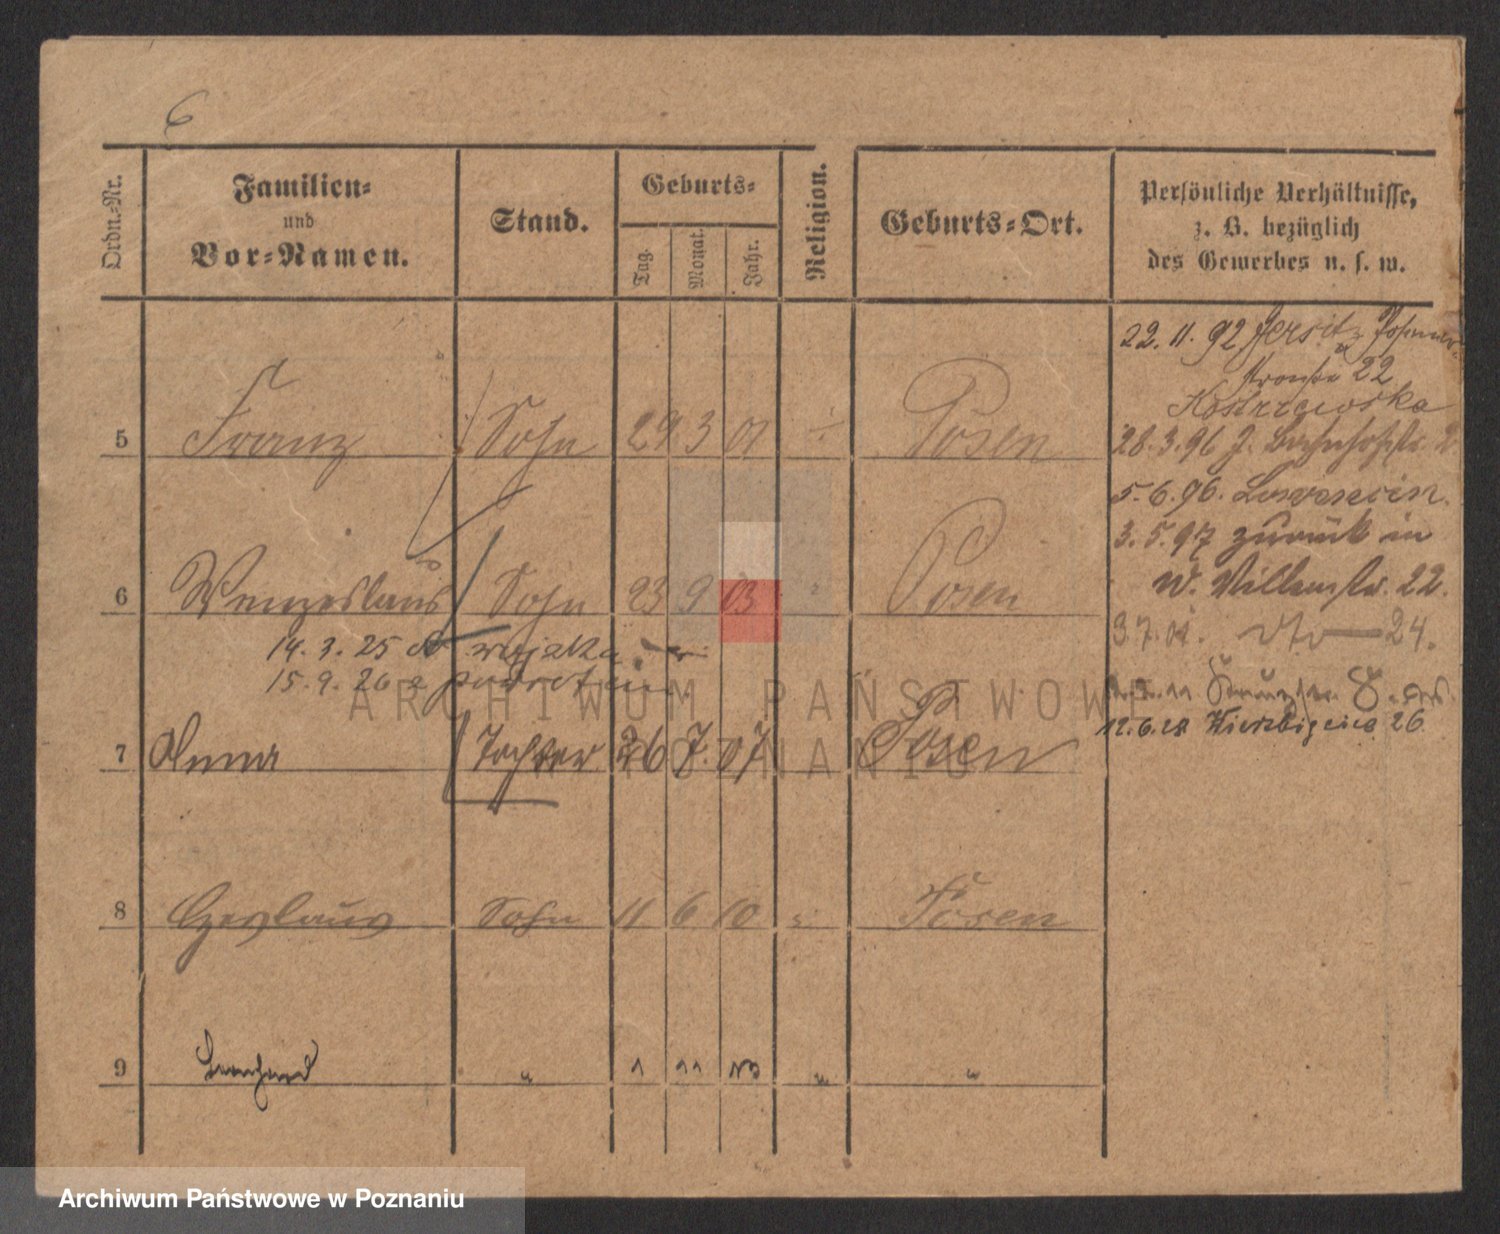 6
Ordn.-Nr.
Familien-
und
Vor-Namen.
Stand.
Geburts-
Tag.
Monat.
Jahr.
Religion.
Geburts-Ort.
Persönliche Verhältnisse,
z. B. bezüglich
des Gewerbes u. s. w.
22. 11. 92 Jersitz Posener-
strasse 22
Kostrzewska
5 Franz Sohn 29 3 01 Posen
28. 3. 96 J. Bahnhofstr. 2
5. 6. 96.
3. 5. 97 zurück in
6 Wenzeslaus Sohn 23 9 03 " Posen
W. 22.
3. 7. 01. dto — 24.
14. 3. 25 do wojska
15. 9. 26 z powrotem
12. 6. 28 Wierzbięcice 26
7 Anna Tochter 26 7. 07 Posen
8 Czeslaus Sohn 11 6 10 " Posen
9 Bernhard " 1 11 13 " "
ARCHIWUM PAŃSTWOWE
W POZNANIU
Archiwum Państwowe w Poznaniu